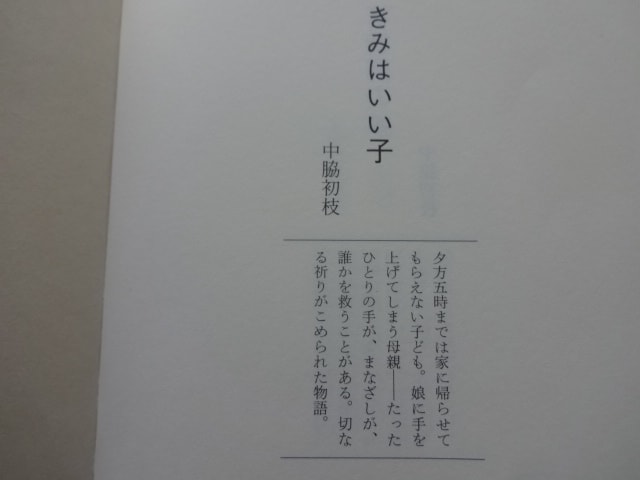 きみはいい子
中脇初枝
夕方五時までは家に帰らせて
もらえない子ども。娘に手を
上げてしまう母親――たった
ひとりの手が、まなざしが、
誰かを救うことがある。切な
る祈りがこめられた物語。